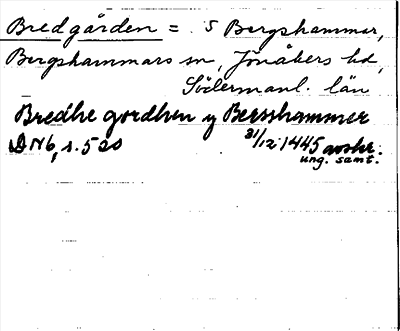 Bredgården = S Bergshammar,
Bergshammars sn, Jönåkers hd,
Södermanl. län
Bredhe gordhen y Bersshammer
DN6, s. 520 31/12 1445 avskr.
ung. samt.